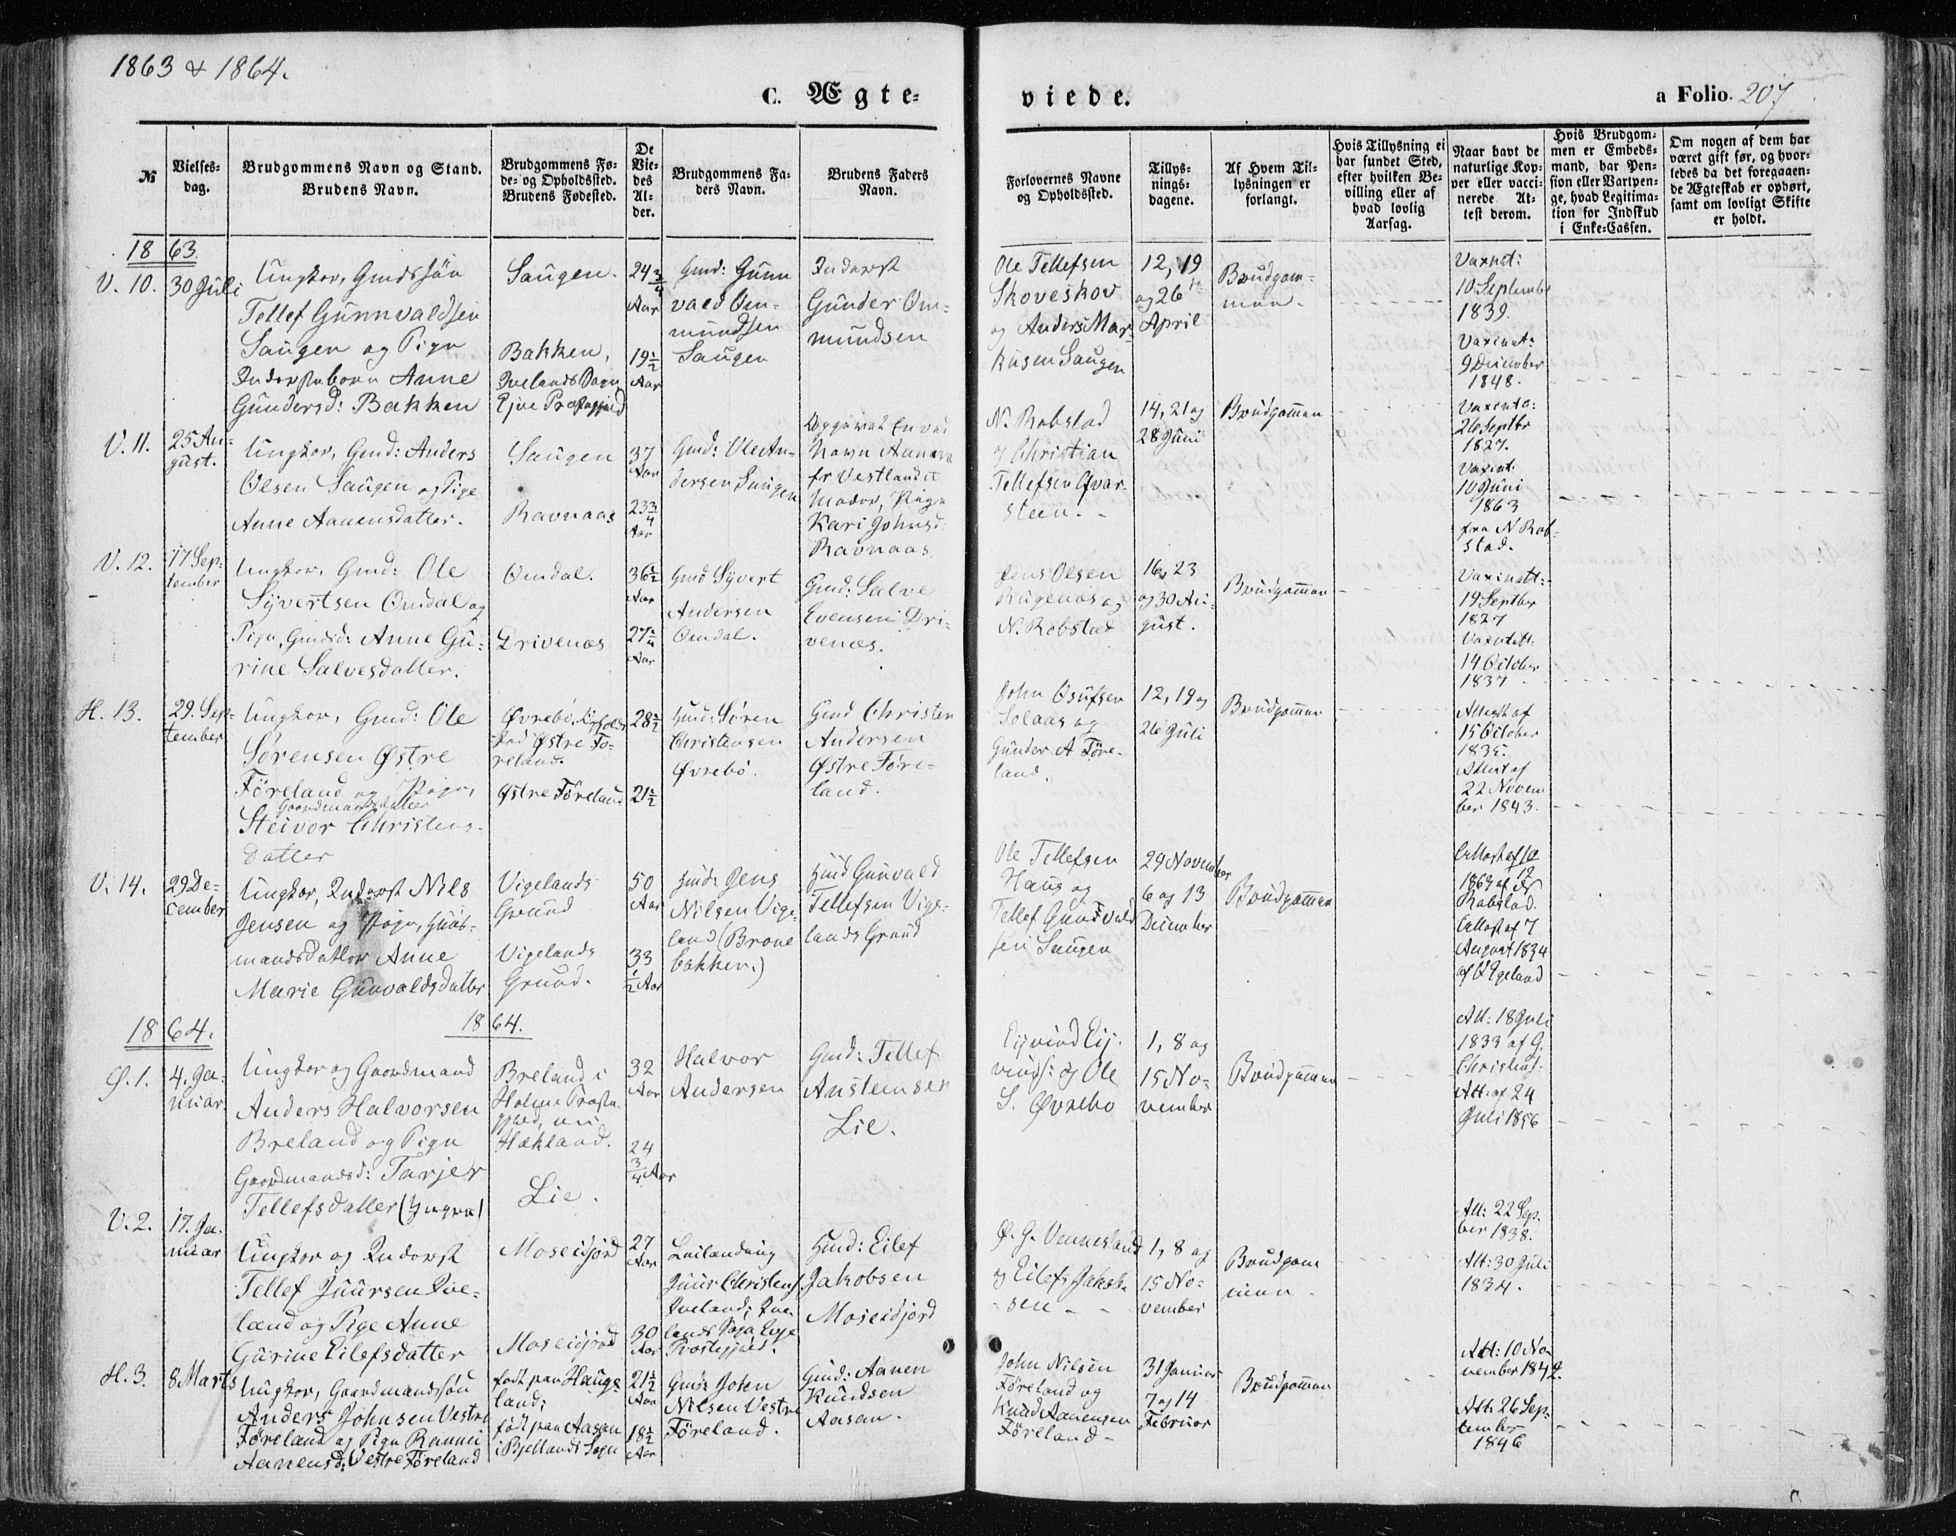 1863 & 1864.
C. Ægte=
viede.
a Folio. 207
№
Vielses-
dag.
Brudgommens Navn og Stand.
Brudens Navn.
Brudgommens Fø-
de- og Opholdssted.
Brudens Fødested.
De
Vie-
des
Al-
der.
Brudgommens Fa-
ders Navn.
Brudens Faders
Navn.
Forlovernes Navne
og Opholdssted.
Tillys-
nings-
dagene.
Af Hvem Til-
lysningen er
forlangt.
Hvis Tillysning ei
har fundet Sted,
efter hvilken Be-
villing eller af
hvad lovlig
Aarsag.
Naar havt de
naturlige Kop-
per eller vacci-
nerede At-
test derom.
Hvis Brudgom-
men er Embeds-
mand, har Pen-
sion eller Vartpen-
ge, hvad Legitima-
tion for Indskud
i Enke-Cassen.
Om nogen af dem har
været gift før, og hvor-
ledes da det foregaaen-
de Ægteskab er ophørt,
samt om lovligt Skifte
er holdt.
1863.
V. 10.
30 Juli
Ungkar, Gmdssøn
Tellef Gunnvaldsen
Saugen og Pige
Inderstebarn Anne
Gundersd: Bakken
Saugen.
Bakken,
Ivelands Sogn
Evje Præstegjeld
24 3/4
Aar
19 1/2
Aar
Gmd: Gunn
vald Om-
mundsen
Saugen
Inderst
Gunder Om-
mundsen
Ole Tellefsen
Skoveskov
og Anders Mar-
kusen Saugen
12, 19
og 26
April
Brudgom-
men.
Vaxnt:
10 Septembr
1839.
Vaxinat:
9 December
1848.
V. 11.
25 Au-
gust.
Ungkar, Gmd: Anders
Olsen Saugen og Pige
Anne Aanensdatter.
Saugen
Ravnaas
37
Aar
23 3/4
Aar
Gmd: Ole An-
dersen Saugen
Opgivet En ved
Navn Aanen
fr Vestlandet
Moder, Pige
Kari Johnsd.
Ravnaas
N. Robstad
og Christian
Tellefsen Qvar-
stein.
14, 21 og
28 Juni
Brudgommen
Vaxinta:
26 Septbr
1827.
Vaxint:
10 Juni
1863
fra N Rob-
stad.
V. 12.
17 Sep-
tember
Ungkar, Gmd: Ole
Syvertsen Omdal og
Pige, Gmdsd: Anne Gu-
rine Salvesdatter.
Omdal.
Drivenæs
36 1/2
Aar
27 1/4
Aar
Gmd Syvert
Andersen
Omdal.
Gmd: Salve
Evensen Dri-
venæs.
Jens Olsen
Rugenæs og
N. Robstad
16, 23
og 30 Au-
gust.
Brudgommen
Vaxinatt:
19 Septbr
1827
Vaxntatt:
14 October
1837
H. 13.
29. Sep-
tember
Ungkar, Gmd: Ole
Sørensen Østre
Føreland og Pige,
Gaardmandsdatter
Steivor Christens-
datter
Øvrebø,
Østre Fø-
reland.
Østre Føreland
28 1/2
21 1/2
Gmd: Søren
Christensen
Øvrebø.
Gmd Christen
Andersen
Østre Føre-
land.
John Osufsen
Solaas og
Gunder A Føre-
land.
12, 19 og
26 Juli
Brudgommen
Attest af
15 October
1835.
Attest af
22 Novem
ber 1843.
V. 14.
29 De-
cember
Ungkar, Inderst Nils
Jensen og Pige, Huus-
mandsdatter Anne
Marie Gunvaldsdatter
Vigelands
Grund
Vigelands
Grund.
50
Aar
33
1/2 Aar
Hmd: Jens
Nilsen Vige-
land (Brone
bakken.)
Hmd Gunvald
Tellefsen Vige-
lands Grund
Ole Tellefsen
Haus og
Tellef Gundvald
sen Saugen
29 November
6 og 13
December
Brudgommen
Attest af 10/12
1863 af N
Robstad.
Attest af 7
August 1834
af O Egeland
1864.
1864.
Ø. 1.
4. Ja-
nuar
Ungkar og Gaardmand
Anders Halvorsen
Breland og Pige
Gaardmandsd: Tarjer
Tellefsdatter
Breland i
Holum Præste-
gjeld, nu
Hækland.
Lie.
32
Aar
24
3/4 Aar
Halvor
Andersen
Gmd: Tellef
Austeinsen
Lie.
Eyvind Ey-
vinds: og Ole
S. Øvrebø
1, 8 og
15 No-
vember
Brudgommen
Att: 18 Juli
1833 af G.
Christens:
Att: af 24
Juli 1856
V. 2.
17. Ja-
nuar
Ungkar og Inderst
Tellef Juursen Ive-
land og Pige Anne
Gurine Eilefsdatter
Moseidjord
Moseidjord
27
Aar
30
Aar
Leilænding
Juur Christens.
Iveland, Ive-
lands Sogn Evje
Præstegjeld.
Hmd: Eilef
Jakobsen
Moseidjord
Ø. G. Vennesland
og Eilef Jakob-
sen
1, 8 og
15 No-
vember
Brudgom
men
Att: 22 Sep-
ber 1838.
Att: 30 Juli
1834.
H. 3.
8 Marts
Ungkar, Gaardmandssøn
Anders Johnsen Vestre
Føreland og Pige Ranni
Aanensd: Vestre Føreland
født paa Hauge
land;
født paa Aasan
i Bjellands Sogn
21 1/2
Aar
18 1/2
Aar
Gmd: John
Nilsen Vestre
Føreland.
Gmd: Aanen
Knudsen
Aasan.
John Nilsen
Føreland og
Knud Aanensen
Føreland
31 Januar
7 og 14
Februar
Brudgommen
Att: 10 No-
vember 1842.
Att: 26 Sep-
tember
1846